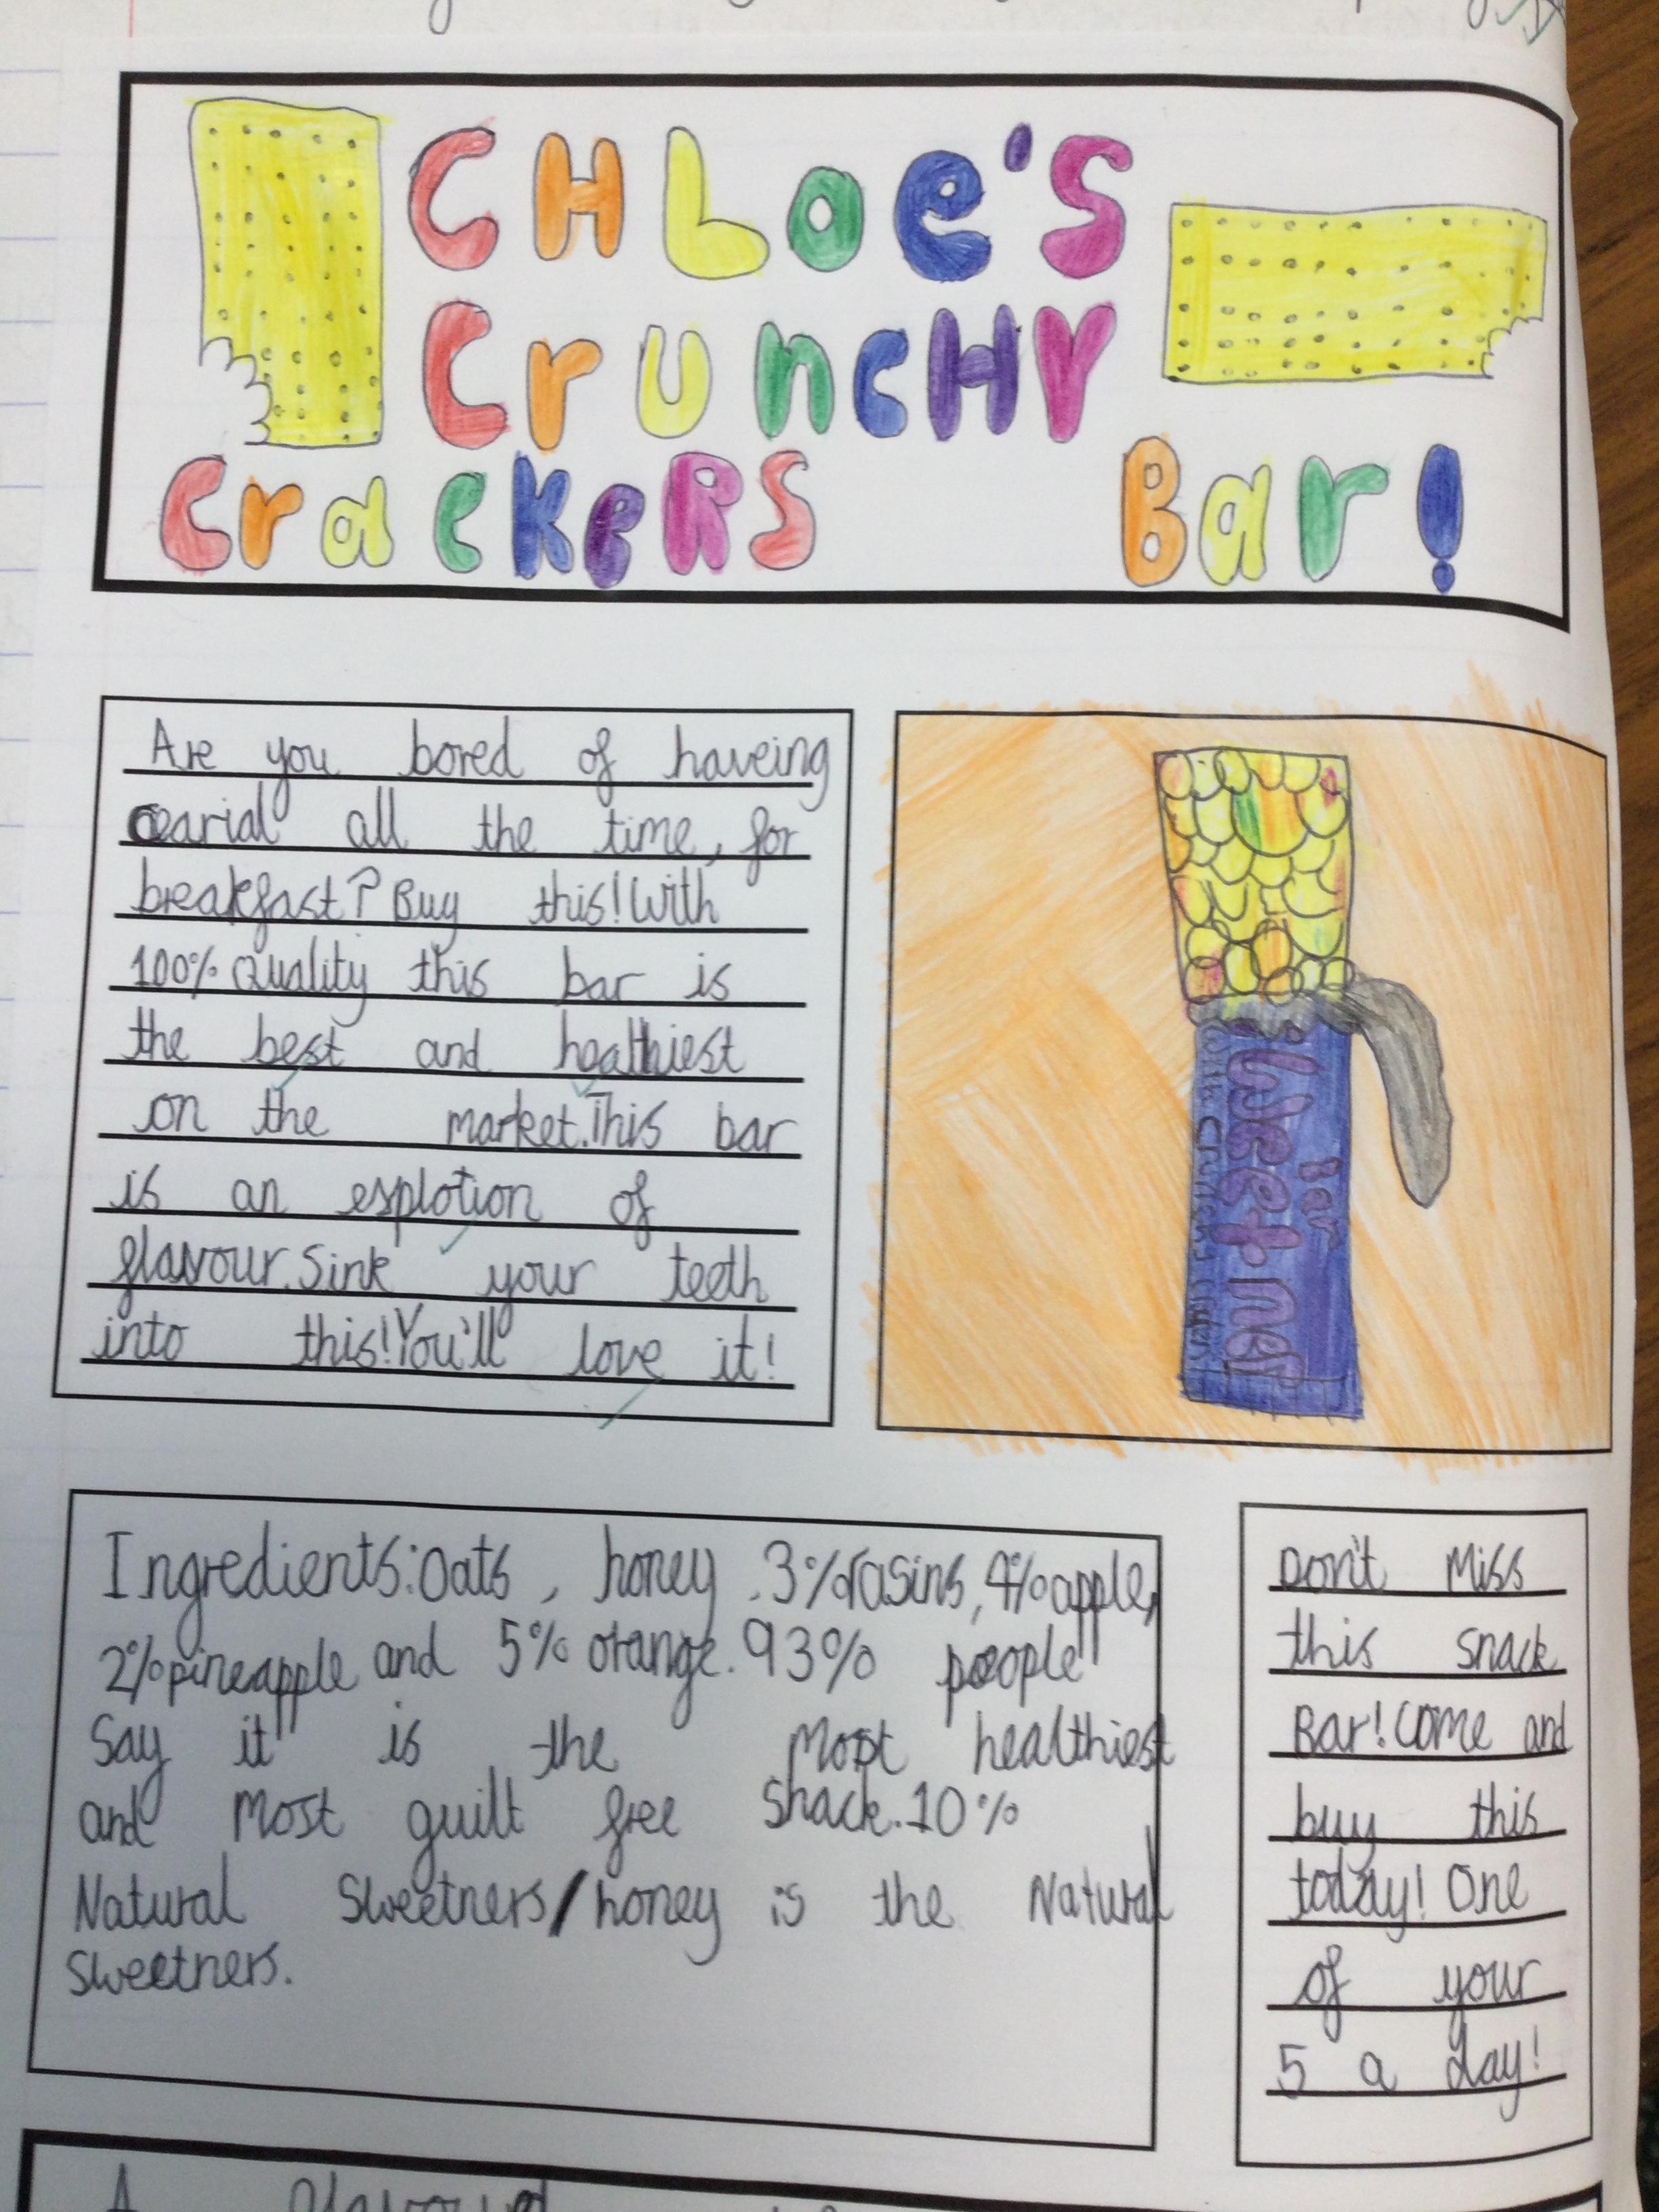 CHLoe's
CrunCHY
CrackeRS Bar!
Are you bored of haveing
cearial all the time, for
breakfast? Buy this! With
100% Quality this bar is
the best and healthiest
on the market. This bar
is an esplotion of
flavour. Sink your teeth
into this! You'll love it!
bar
With Crunchy
Ingredients: Oats, honey, 3% rasins, 4% apple,
2% pineapple and 5% orange. 93% people
Say it is the Most healthiest
and Most guilt free Snack. 10%
Natural Sweetners/honey is the Natural
Sweetners.
Don't Miss
this snack
Bar! Come and
buy this
today! One
of your
5 a day!
A flavour